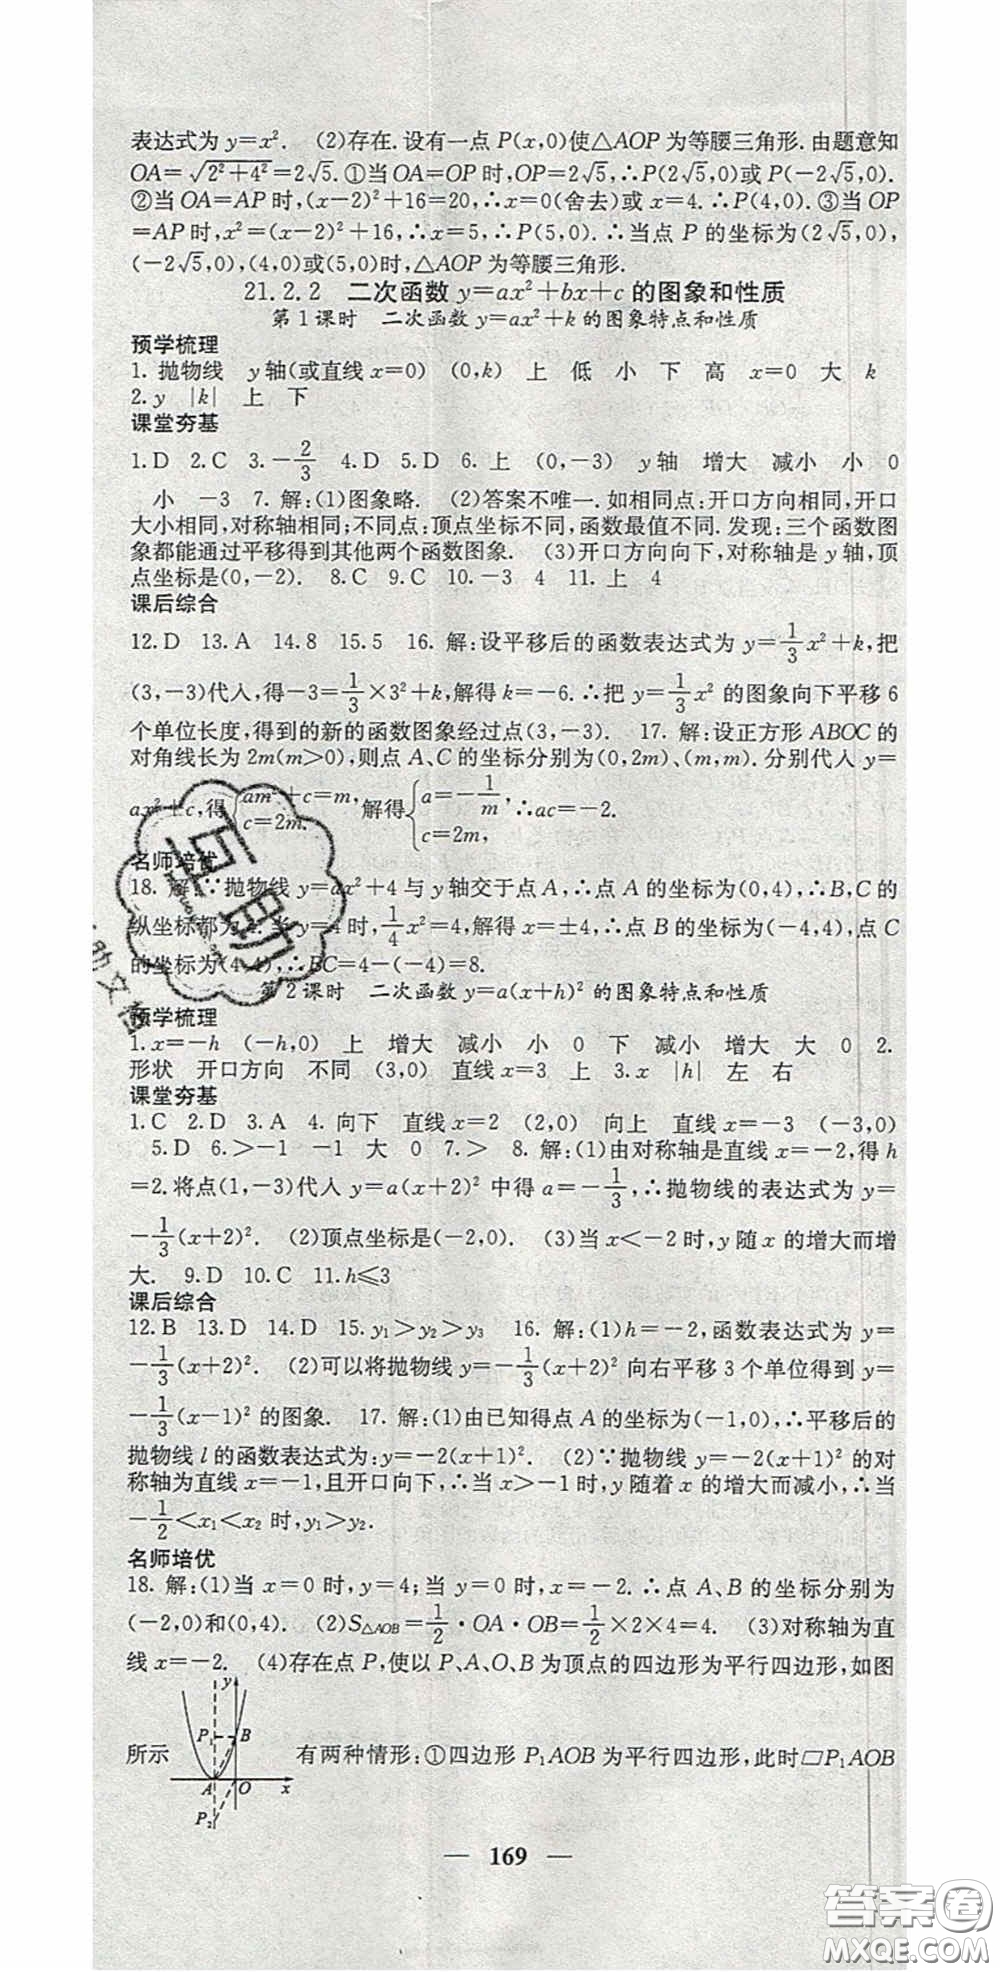 表达式为 y=x². (2)存在.设有一点 P(x,0)使△AOP 为等腰三角形.由题意知
OA=√(2²+4²)=2√5.①当 OA=OP 时,OP=2√5,∴P(2√5,0)或 P(-2√5,0).
②当 OA=AP 时,(x-2)²+16=20,∴x=0(舍去)或 x=4.∴P(4,0).③当 OP
=AP 时,x²=(x-2)²+16,∴x=5,∴P(5,0).∴当点 P 的坐标为(2√5,0),
(-2√5,0),(4,0)或(5,0)时,△AOP 为等腰三角形.
21.2.2 二次函数 y=ax²+bx+c 的图象和性质
第1课时 二次函数 y=ax²+k 的图象特点和性质
预学梳理
1. 抛物线 y 轴(或直线 x=0) (0,k) 上 低 小 下 高 x=0 大 k
2.y |k| 上 下
课堂夯基
1.D 2.C 3.-2/3 4.D 5.D 6.上 (0,-3) y轴 增大 减小 小 0
小 -3 7. 解:(1)图象略. (2)答案不唯一.如相同点:开口方向相同,开口
大小相同,对称轴相同;不同点:顶点坐标不同,函数最值不同.发现:三个函数图
象都能通过平移得到其他两个函数图象. (3)开口方向向下,对称轴是 y 轴,顶
点坐标是(0,-2). 8.C 9.C 10.-3 4 11.上 4
课后综合
12.D 13.A 14.8 15.5 16. 解:设平移后的函数表达式为 y=1/3x²+k,把
(3,-3)代入,得-3=1/3×3²+k,解得 k=-6.∴把 y=1/3x² 的图象向下平移 6
个单位长度,得到的新的函数图象经过点(3,-3). 17. 解:设正方形 ABOC 的
对角线长为 2m(m>0),则点 A、C 的坐标分别为(0,2m)、(m,m).分别代入 y=
ax²+c,得{am²+c=m, c=2m. 解得{a=-1/m, c=2m, ∴ac=-2.
名师培优
18. 解:∵抛物线 y=ax²+4 与 y 轴交于点 A,∴点 A 的坐标为(0,4),∴B,C 的
纵坐标都为4.当 y=4 时,1/4x²=4,解得 x=±4,∴点 B 的坐标为(-4,4),点 C
的坐标为(4,4),∴BC=4-(-4)=8.
第2课时 二次函数 y=a(x+h)² 的图象特点和性质
预学梳理
1.x=-h (-h,0) 上 增大 减小 小 0 下 减小 增大 大 0 2.
形状 开口方向 不同 (3,0) 直线 x=3 上 3.x |h| 左 右
课堂夯基
1.C 2.D 3.A 4. 向下 直线 x=2 (2,0) 向上 直线 x=-3 (-3,0)
5.D 6.>-1 -1 大 0 7.> 8. 解:(1)由对称轴是直线 x=-2,得 h
=2.将点(1,-3)代入 y=a(x+2)² 中得 a=-1/3,∴抛物线的表达式为 y=
-1/3(x+2)². (2)顶点坐标是(-2,0). (3)当 x<-2 时,y 随 x 的增大而增
大. 9.D 10.C 11.h≤3
课后综合
12.B 13.D 14.D 15.y₁>y₂>y₃ 16. 解:(1)h=-2,函数表达式为 y=
-1/3(x+2)². (2)可以将抛物线 y=-1/3(x+2)² 向右平移 3 个单位得到 y=
-1/3(x-1)² 的图象. 17. 解:(1)由已知得点 A 的坐标为(-1,0),∴平移后的
抛物线 l 的函数表达式为:y=-2(x+1)². (2)∵抛物线 y=-2(x+1)² 的对
称轴为直线 x=-1,且开口向下,∴当 x>-1 时,y 随着 x 的增大而减小,∴当
-1/2<x₁<x₂ 时,y₁>y₂.
名师培优
18. 解:(1)当 x=0 时,y=4;当 y=0 时,x=-2.∴点 A、B 的坐标分别为
(-2,0)和(0,4). (2)S△AOB=1/2·OA·OB=1/2×2×4=4. (3)对称轴为直
线 x=-2. (4)存在点 P,使以 P、A、O、B 为顶点的四边形为平行四边形,如图
y
P₁ B
所示 有两种情形:①四边形 P₁AOB 为平行四边形,此时▱P₁AOB
A O x
P₂
— 169 —
互助
答案圈
MXQE.COM